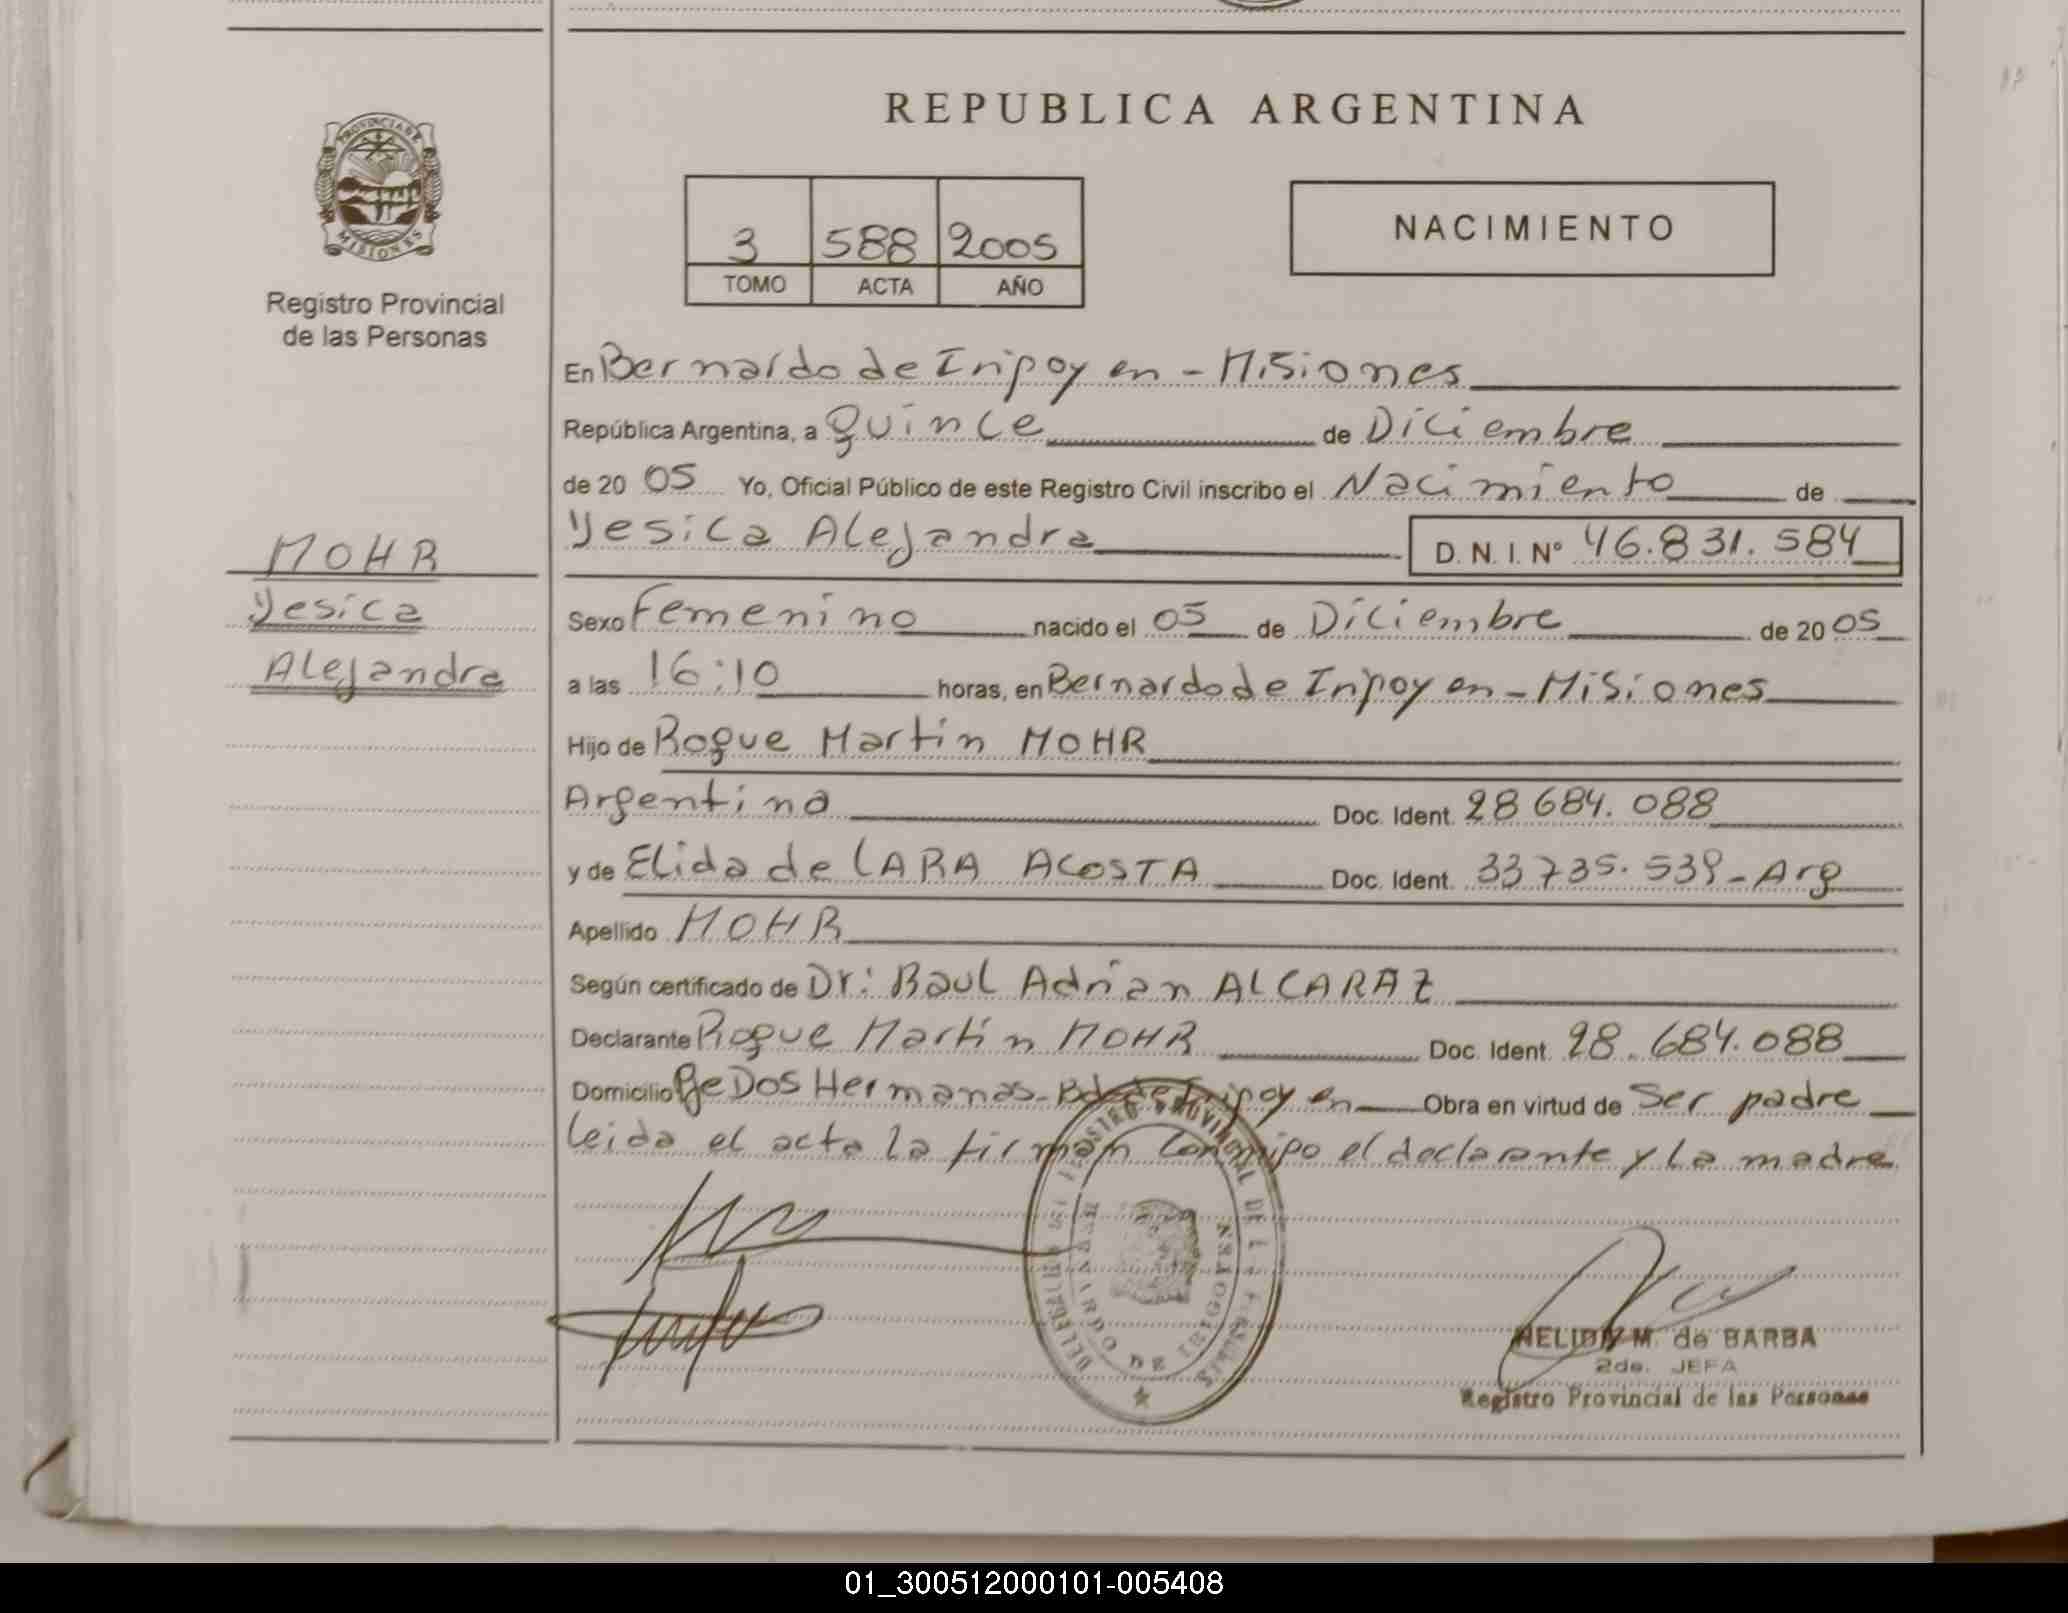 REPUBLICA ARGENTINA
PROVINCIA DE
MISIONES
Registro Provincial
de las Personas
3 588 2005
TOMO ACTA AÑO
NACIMIENTO
En Bernardo de Iripoyen - Misiones
República Argentina, a quince de Diciembre
de 20 05 Yo, Oficial Público de este Registro Civil inscribo el Nacimiento de
Yesica Alejandra D. N. I. Nº 46.831.584
MOHR
Yesica
Alejandra
Sexo Femenino nacido el 05 de Diciembre de 20 05
a las 16:10 horas, en Bernardo de Iripoyen - Misiones
Hijo de Roque Martin MOHR
Argentina Doc. Ident. 28 684.088
y de Elida de LARA ACOSTA Doc. Ident. 33 735.539 - Arg
Apellido MOHR
Según certificado de Dr: Raul Adrian ALCARAZ
Declarante Roque Martin MOHR Doc. Ident. 28.684.088
Domicilio Pje Dos Hermanas - Bdo de Iripoyen Obra en virtud de Ser padre
leida el acta la firman conmipo el declarante y la madre
REGISTRO PROVINCIAL DE LAS PERSONAS
BERNARDO DE IRIGOYEN
NELIDA M. de BARBA
2da. JEFA
Registro Provincial de las Personas
01_300512000101-005408